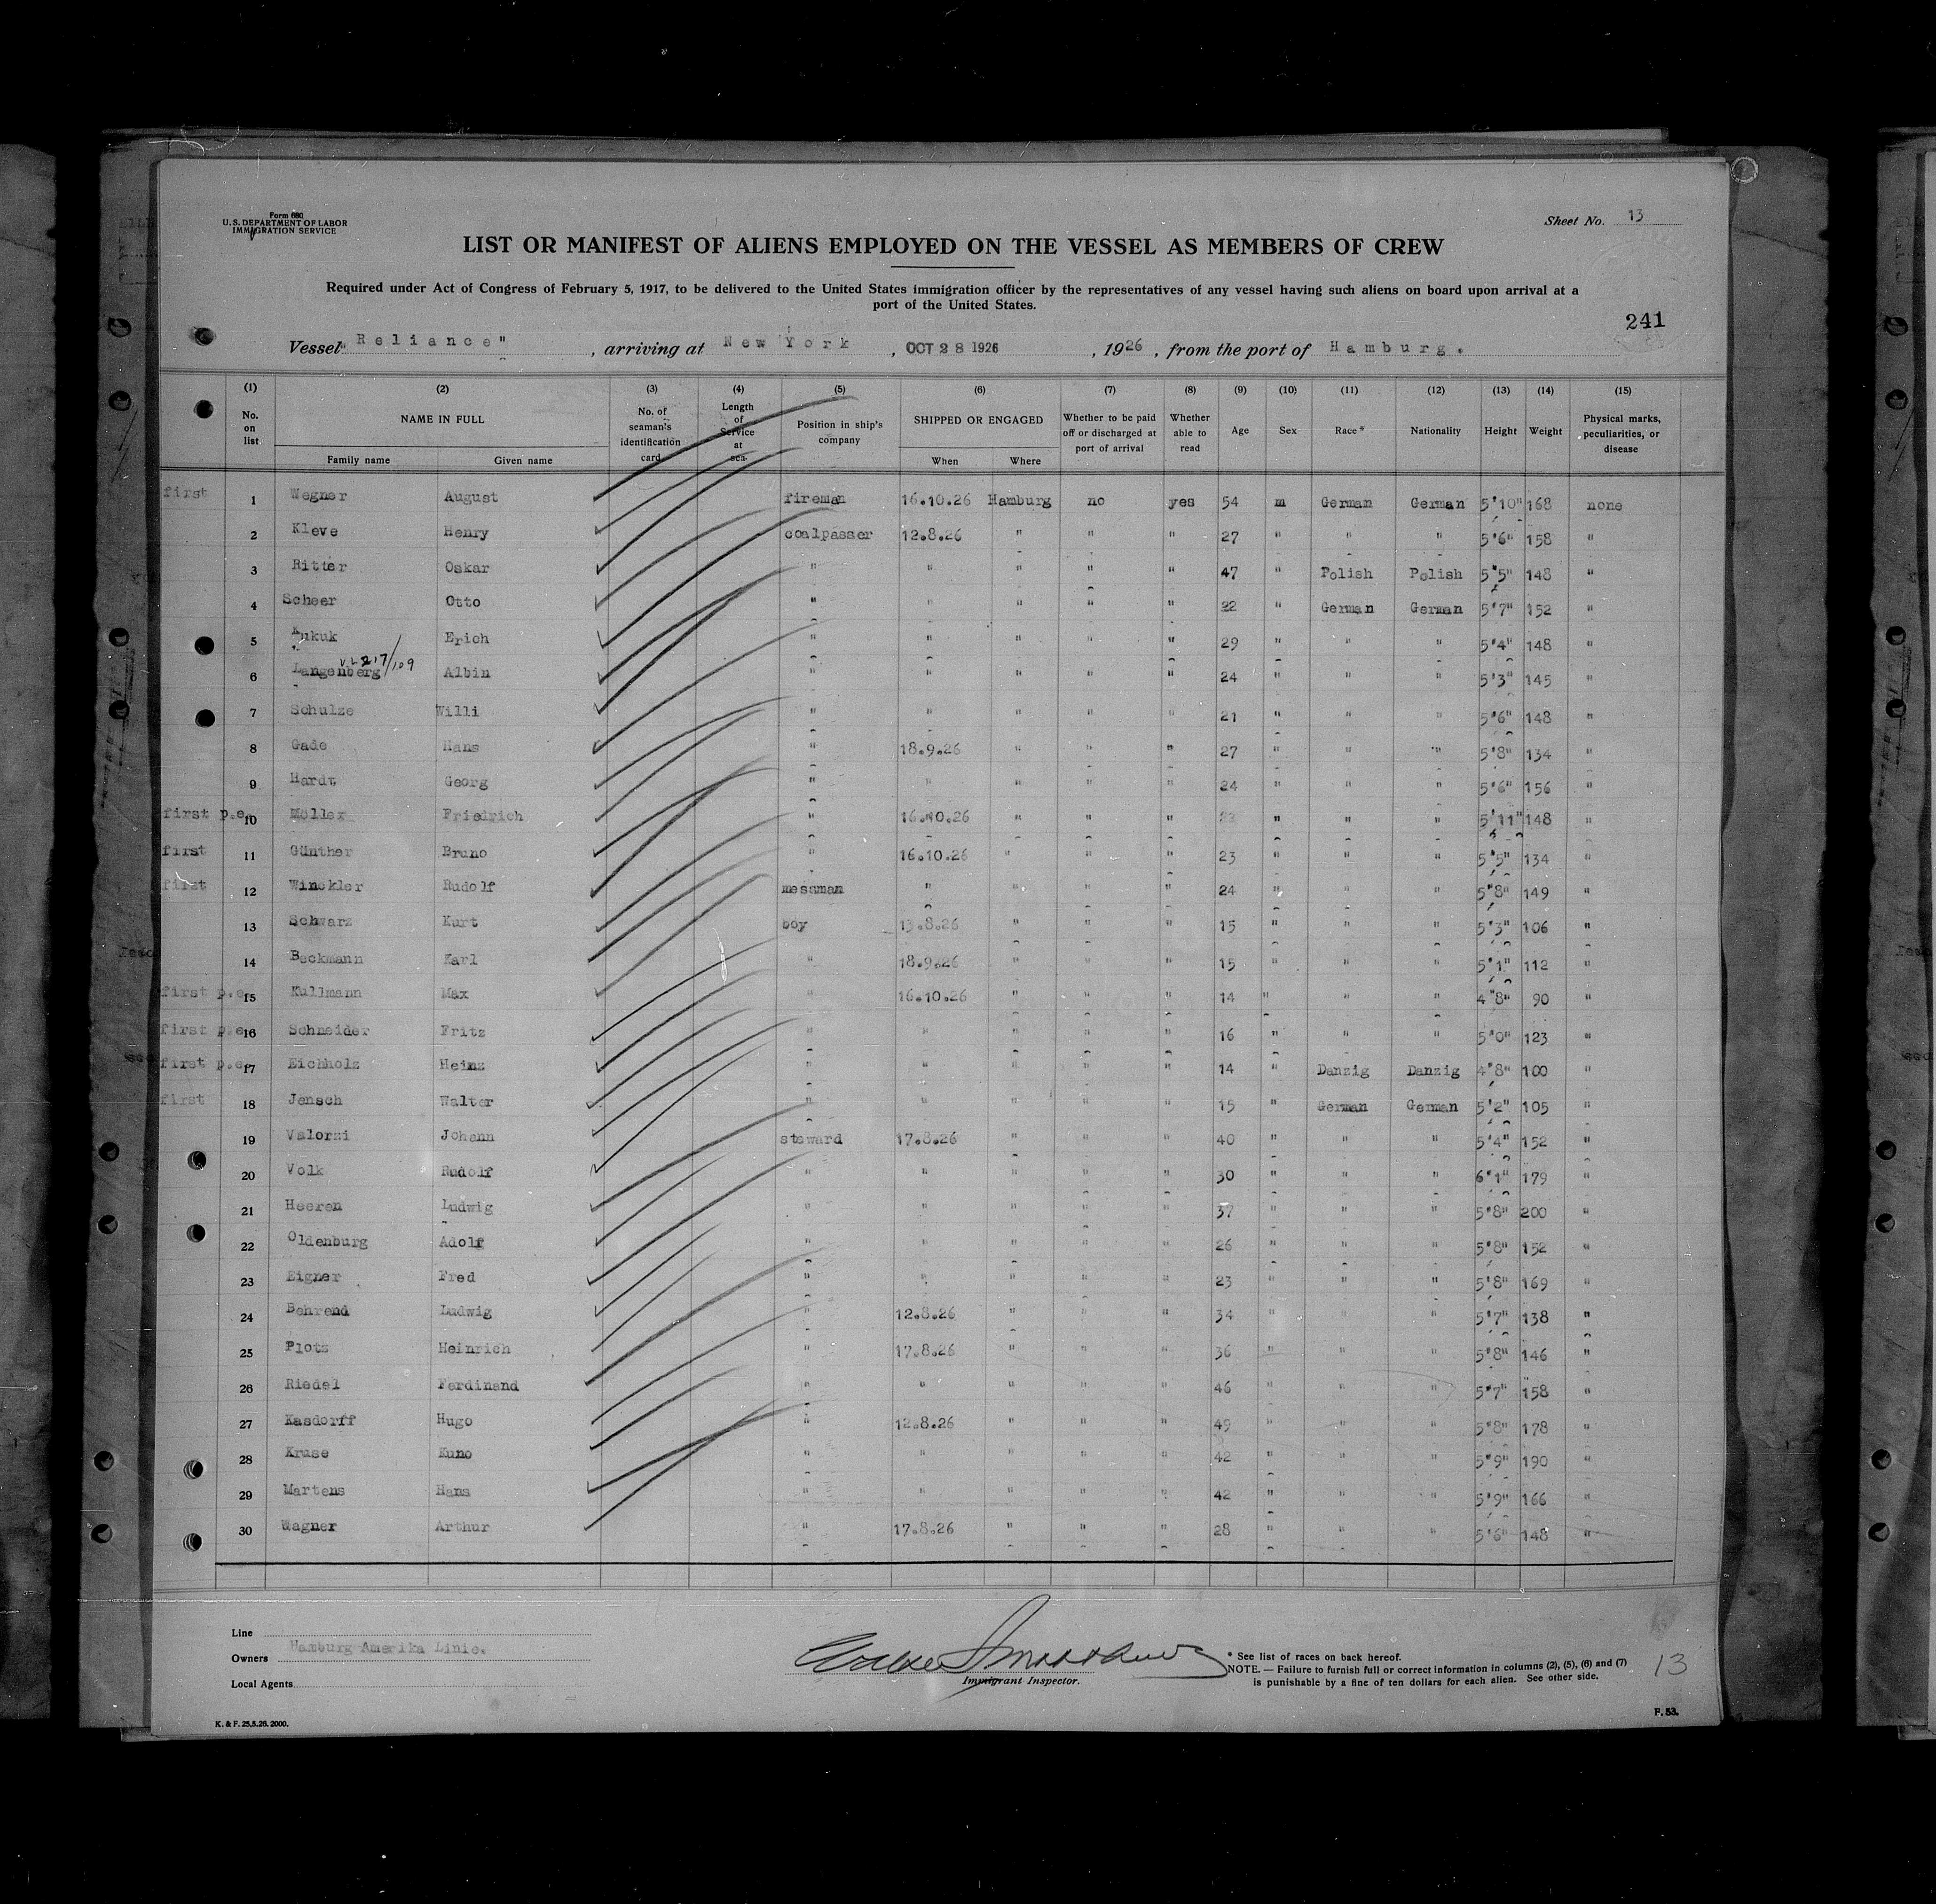 Form 680
U. S. DEPARTMENT OF LABOR
IMMIGRATION SERVICE
Sheet No. 13
LIST OR MANIFEST OF ALIENS EMPLOYED ON THE VESSEL AS MEMBERS OF CREW
Required under Act of Congress of February 5, 1917, to be delivered to the United States immigration officer by the representatives of any vessel having such aliens on board upon arrival at a
port of the United States.
241
Vessel "Reliance", arriving at New York, OCT 28 1926, 1926, from the port of Hamburg.
(1) (2) (3) (4) (5) (6) (7) (8) (9) (10) (11) (12) (13) (14) (15)
No. on list NAME IN FULL No. of seaman's identification card Length of Service at sea. Position in ship's company SHIPPED OR ENGAGED Whether to be paid off or discharged at port of arrival Whether able to read Age Sex Race* Nationality Height Weight Physical marks, peculiarities, or disease
Family name Given name When Where
first 1 Wegner August fireman 16.10.26 Hamburg no yes 54 m German German 5'10" 168 none
2 Kleve Henry coalpasser 12.8.26 " " " 27 " " " 5'6" 158 "
3 Ritter Oskar " " " " " 47 " Polish Polish 5'5" 148 "
4 Scheer Otto " " " " " 22 " German German 5'7" 152 "
5 Kukuk Erich " " " " " 29 " " " 5'4" 148 "
217/109
6 Langenberg Albin " " " " " 24 " " " 5'3" 145 "
7 Schulze Willi " " " " " 21 " " " 5'6" 148 "
8 Gade Hans " 18.9.26 " " " 27 " " " 5'8" 134 "
9 Hardt Georg " " " " " 24 " " " 5'6" 156 "
first p.e. 10 Möller Friedrich " 16.10.26 " " " " " " 5'11" 148 "
first 11 Günther Bruno " 16.10.26 " " " 23 " " " 5'5" 134 "
first 12 Winckler Rudolf messman " " " " 24 " " " 5'8" 149 "
13 Schwarz Kurt boy 13.8.26 " " " 15 " " " 5'3" 106 "
14 Beckmann Karl " 18.9.26 " " " 15 " " " 5'1" 112 "
first p.e. 15 Kullmann Max " 16.10.26 " " " 14 " " " 4'8" 90 "
first p.e. 16 Schneider Fritz " " " " " 16 " " " 5'0" 123 "
first p.e. 17 Eichholz Heinz " " " " " 14 " Danzig Danzig 4'8" 100 "
first 18 Jensch Walter " " " " " 15 " German German 5'2" 105 "
19 Valorzi Johann steward 17.8.26 " " " 40 " " " 5'4" 152 "
20 Volk Rudolf " " " " " 30 " " " 6'1" 179 "
21 Heeren Ludwig " " " " " 37 " " " 5'8" 200 "
22 Oldenburg Adolf " " " " " 26 " " " 5'8" 152 "
23 Eigner Fred " " " " " 23 " " " 5'8" 169 "
24 Behrend Ludwig " 12.8.26 " " " 34 " " " 5'7" 138 "
25 Plotz Heinrich " 17.8.26 " " " 36 " " " 5'8" 146 "
26 Riedel Ferdinand " " " " " 46 " " " 5'7" 158 "
27 Kasdorff Hugo " 12.8.26 " " " 49 " " " 5'8" 178 "
28 Kruse Kuno " " " " " 42 " " " 5'9" 190 "
29 Martens Hans " " " " " 42 " " " 5'9" 166 "
30 Wagner Arthur " 17.8.26 " " " 28 " " " 5'6" 148 "
Line
Owners Hamburg Amerika Linie.
Local Agents
Immigrant Inspector.
* See list of races on back hereof.
NOTE. — Failure to furnish full or correct information in columns (2), (5), (6) and (7)
is punishable by a fine of ten dollars for each alien. See other side.
13
K. & F. 25.5.26. 2000.
F. 53.